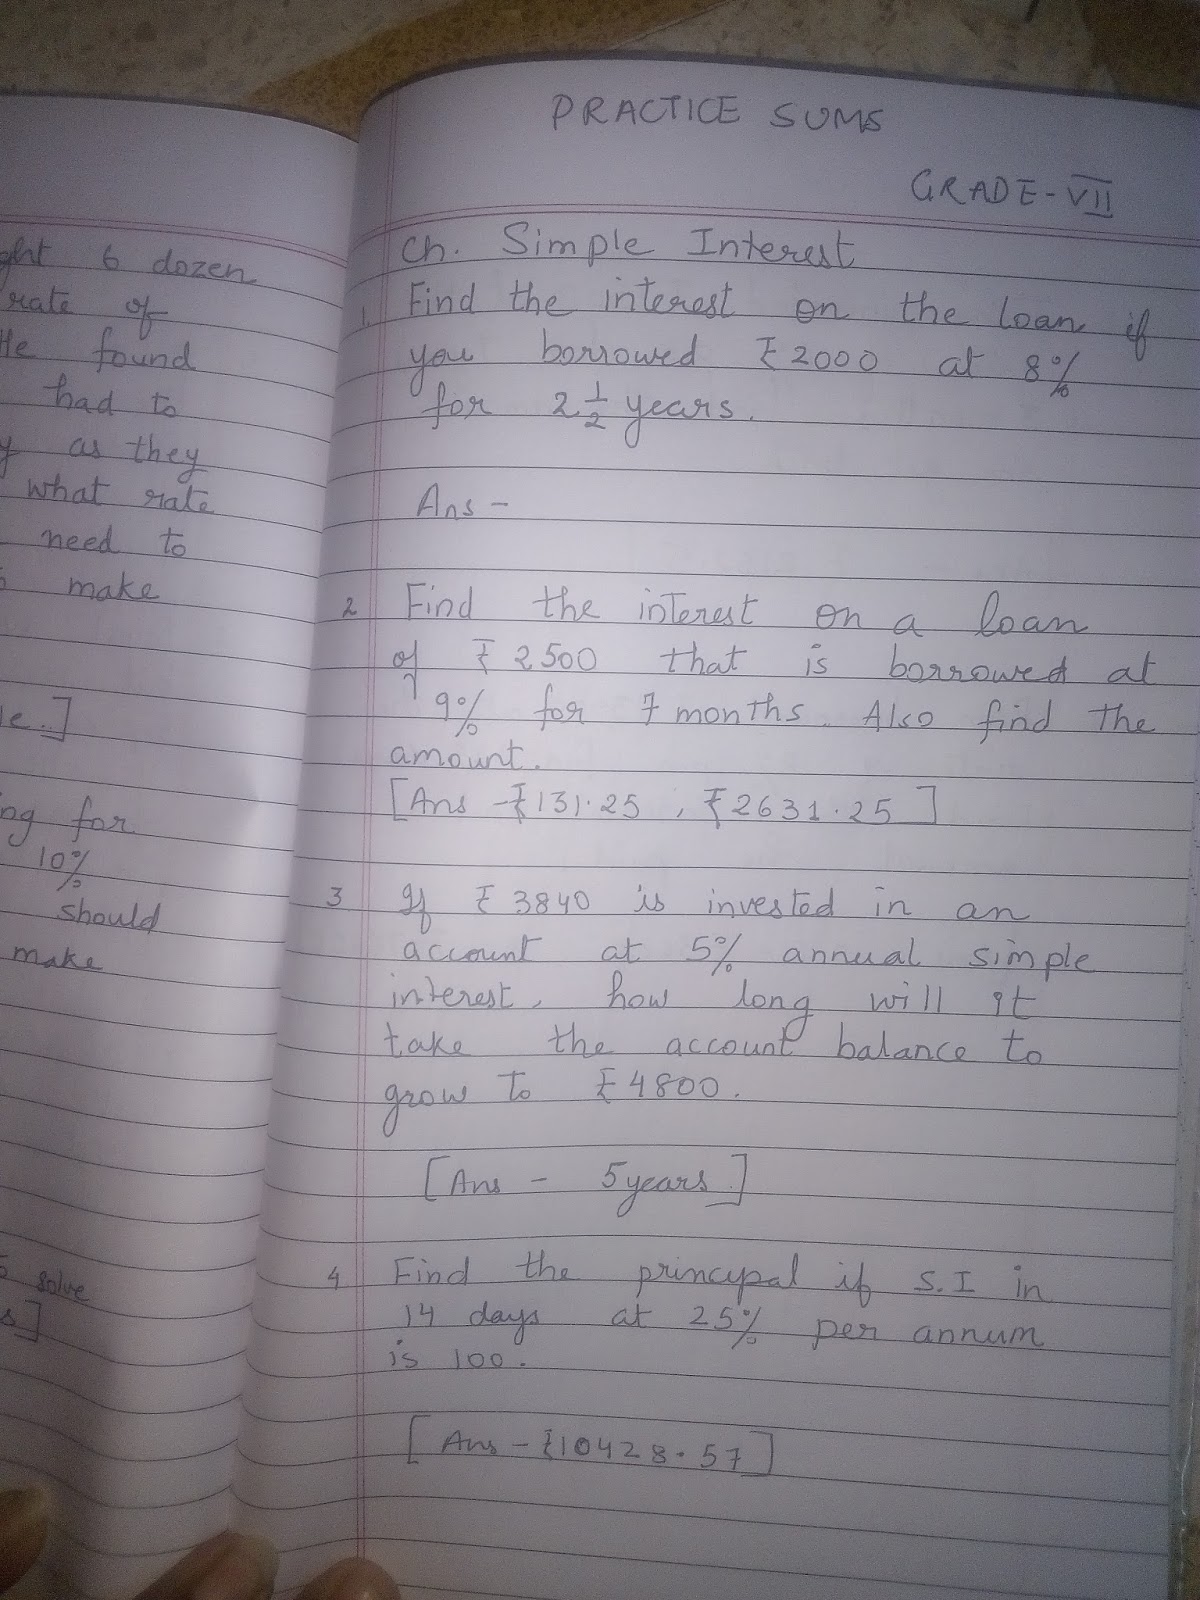 ght 6 dozen
rate of
He found
had to
y as they
what rate
need to
make
le..]
ng for
10%
should
make
solve
s]
PRACTICE SUMS
GRADE-VII
Ch. Simple Interest
1. Find the interest on the loan if
you borrowed ₹2000 at 8%
for 2 1/2 years.
Ans -
2 Find the interest on a loan
of ₹ 2500 that is borrowed at
9% for 7 months. Also find the
amount.
[Ans - ₹131.25, ₹2631.25]
3 If ₹ 3840 is invested in an
account at 5% annual simple
interest, how long will it
take the account balance to
grow to ₹4800.
[Ans - 5years.]
4 Find the principal if S.I in
14 days at 25% per annum
is 100.
[Ans - ₹10428.57]